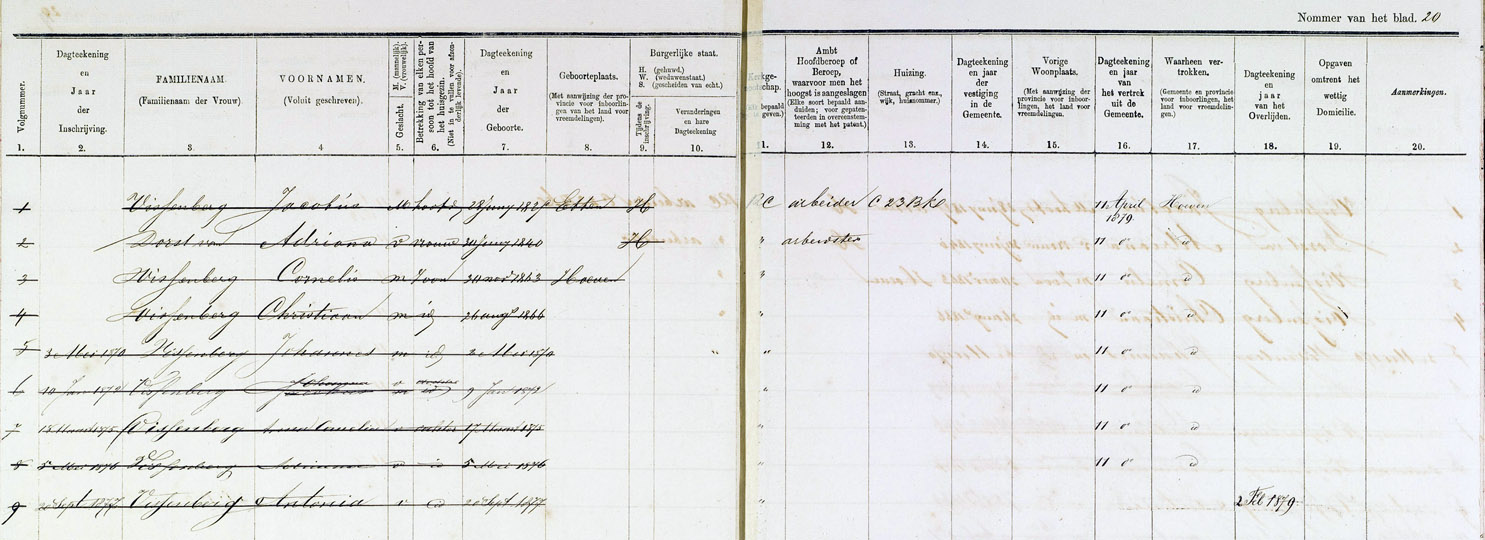 Nommer van het blad. 20
Volgnummer.
Dagteekening en Jaar der Inschrijving.
FAMILIENAAM.
(Familienaam der Vrouw).
VOORNAMEN.
(Voluit geschreven).
Geslacht. M. (mannelijk). V. (vrouwelijk).
Betrekking van elken persoon tot het hoofd van het huisgezin.
(Niet in te vullen voor afzonderlijk levende).
Dagteekening en Jaar der Geboorte.
Geboorteplaats.
(Met aanwijzing der provincie voor inboorlingen, van het land voor vreemdelingen).
Burgerlijke staat.
H. (gehuwd).
W. (weduwenstaat).
S. (gescheiden van echt.)
Tijdens de inschrijving.
Veranderingen en hare Dagteekening
Ambt Hoofdberoep of Beroep, waarvoor men het hoogst is aangeslagen
(Elke soort bepaald aanduiden; voor gepatenteerden in overeenstemming met het patent.)
Huizing.
(Straat, gracht enz., wijk, huisnommer.)
Dagteekening en jaar der vestiging in de Gemeente.
Vorige Woonplaats.
(Met aanwijzing der provincie voor inboorlingen, het land voor vreemdelingen.
Dagteekening en jaar van het vertrek uit de Gemeente.
Waarheen vertrokken.
(Gemeente en provincie voor inboorlingen, het land voor vreemdelingen.)
Dagteekening en jaar van het Overlijden.
Opgaven omtrent het wettig Domicilie.
Aanmerkingen.
1. 2. 3. 4 5. 6. 7. 8. 9. 10. 11. 12. 13. 14. 15. 16. 17. 18. 19. 20.
1 Vissenberg Jacobus M hoofd Etten H RC arbeider C 23 Bk 11 April 1879 Hoeven
2 Dorst van Adriana v vrouw 1840 H " arbeidster 11 " id
3 Vissenberg Cornelis m zoon 30 nov 1863 Hoeven " 11 " id
4 Vissenberg Christiaan m id 26 aug 1866 " 11 " id
5 3 Mei 1870 Vissenberg Johannes m id 2 Mei 1870 " " 11 " id
6 10 Jan 1872 Vissenberg Johanna v 9 Jan 1872 " 11 " id
7 18 Maart 1875 Vissenberg Cornelia v dochter 17 Maart 1875 " 11 " id
8 5 Mei 1876 Vissenberg Adriana v id 5 Mei 1876 " 11 " id
9 20 Sept 1877 Vissenberg Antonia v id 20 Sept 1877 " 2 Feb 1879